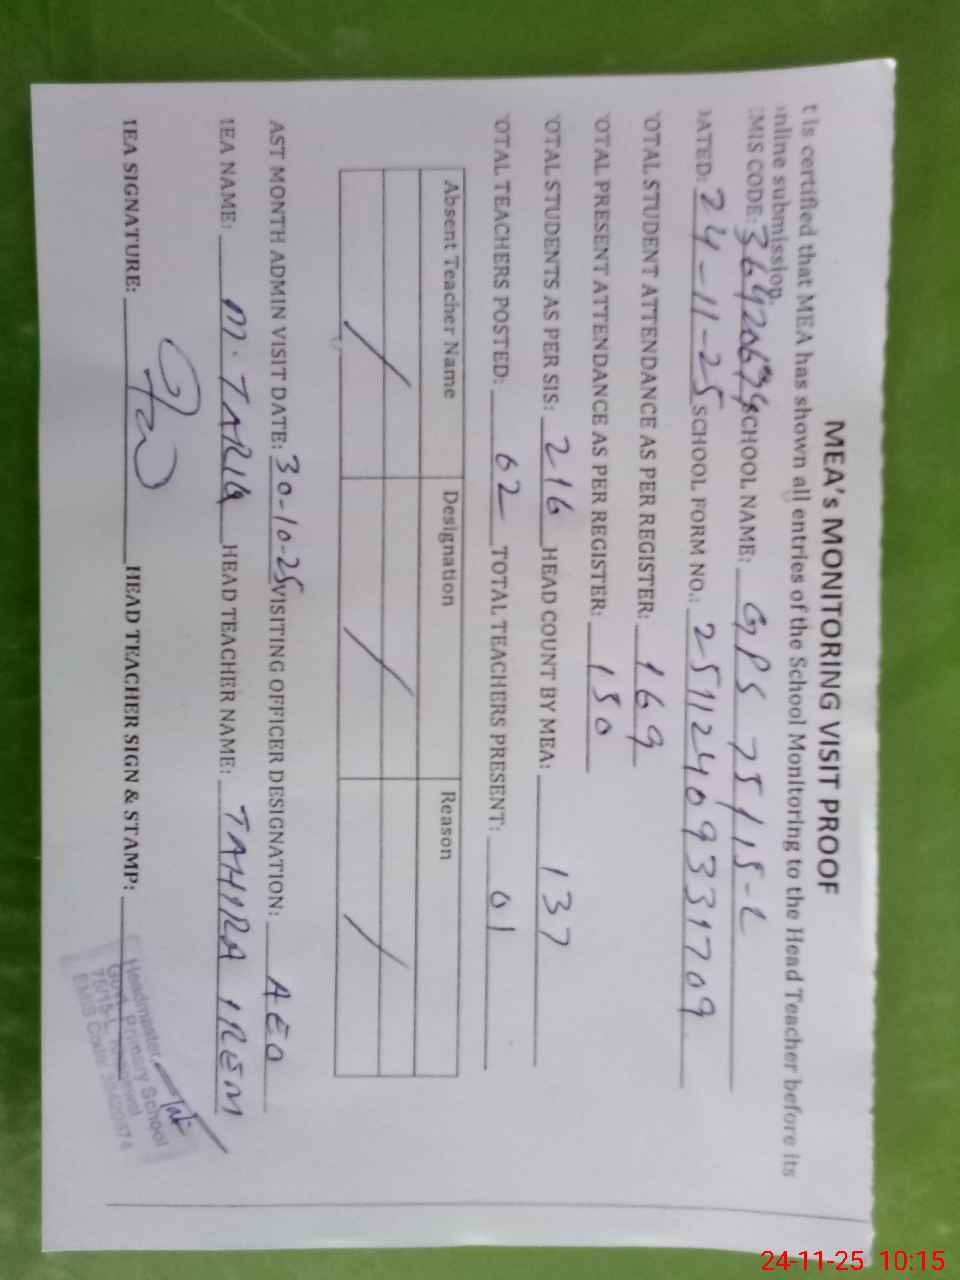 MEA's MONITORING VISIT PROOF
t is certified that MEA has shown all entries of the School Monitoring to the Head Teacher before its
online submission.
EMIS CODE: 36420674 SCHOOL NAME: GPS 75/15-L
DATED: 24-11-25 SCHOOL FORM NO.: 25112409331709
OTAL STUDENT ATTENDANCE AS PER REGISTER: 169
OTAL PRESENT ATTENDANCE AS PER REGISTER: 150
OTAL STUDENTS AS PER SIS: 216 HEAD COUNT BY MEA: 137
OTAL TEACHERS POSTED: 02 TOTAL TEACHERS PRESENT: 01
Absent Teacher Name Designation Reason
/ / /
AST MONTH ADMIN VISIT DATE: 30-10-25 VISITING OFFICER DESIGNATION: AEO
MEA NAME: M. TARIQ HEAD TEACHER NAME: TAHIRA IREM
MEA SIGNATURE: HEAD TEACHER SIGN & STAMP:
Headmaster
Govt. Primary School
75/15-L
EMIS Code: 36420674
24-11-25 10:15